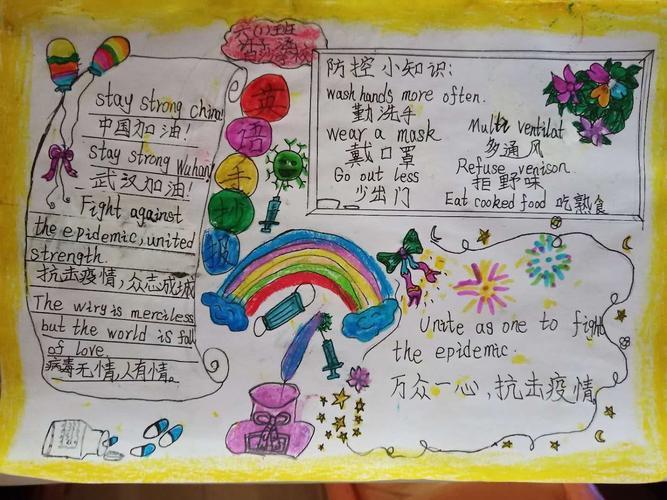 六(1)班
stay strong china!
中国加油!
stay strong Wuhan!
武汉加油!
Fight against
the epidemic, united
strength.
抗击疫情,众志成城
The wiry is merceless
but the world is full
of love.
病毒无情,人有情。
英
语
手
抄
报
防控小知识:
wash hands more often.
勤洗手
wear a mask
戴口罩
Go out less
少出门
Multi ventilat
多通风
Refuse venison
拒野味
Eat cooked food 吃熟食
Unite as one to fight
the epidemic.
万众一心,抗击疫情